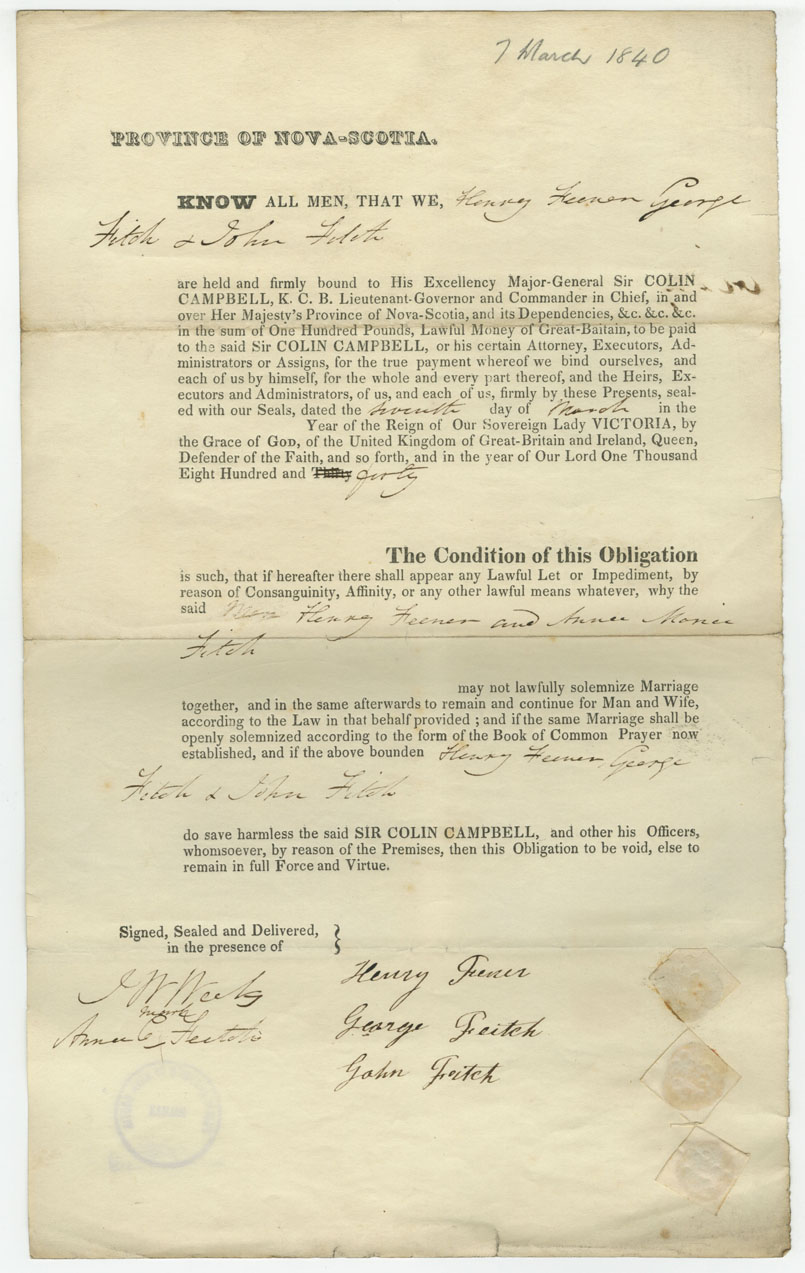 7 March 1840
PROVINCE OF NOVA-SCOTIA.
KNOW ALL MEN, THAT WE, Henry Feener George
Fitch & John Fitch
are held and firmly bound to His Excellency Major-General Sir COLIN
CAMPBELL, K. C. B. Lieutenant-Governor and Commander in Chief, in and
over Her Majesty's Province of Nova-Scotia, and its Dependencies, &c. &c. &c.
in the sum of One Hundred Pounds, Lawful Money of Great-Baitain, to be paid
to the said Sir COLIN CAMPBELL, or his certain Attorney, Executors, Ad-
ministrators or Assigns, for the true payment whereof we bind ourselves, and
each of us by himself, for the whole and every part thereof, and the Heirs, Ex-
ecutors and Administrators, of us, and each of us, firmly by these Presents, seal-
ed with our Seals, dated the seventh day of March in the
Year of the Reign of Our Sovereign Lady VICTORIA, by
the Grace of GOD, of the United Kingdom of Great-Britain and Ireland, Queen,
Defender of the Faith, and so forth, and in the year of Our Lord One Thousand
Eight Hundred and Thirty forty
The Condition of this Obligation
is such, that if hereafter there shall appear any Lawful Let or Impediment, by
reason of Consanguinity, Affinity, or any other lawful means whatever, why the
said Henry Feener and Annee Moriee
Fitch
may not lawfully solemnize Marriage
together, and in the same afterwards to remain and continue for Man and Wife,
according to the Law in that behalf provided ; and if the same Marriage shall be
openly solemnized according to the form of the Book of Common Prayer now
established, and if the above bounden Henry Feener George
Fitch & John Fitch
do save harmless the said SIR COLIN CAMPBELL, and other his Officers,
whomsoever, by reason of the Premises, then this Obligation to be void, else to
remain in full Force and Virtue.
Signed, Sealed and Delivered,
in the presence of
Henry Feener
J W Weeks
mark
George Feitch
Annee Feitch
John Feitch